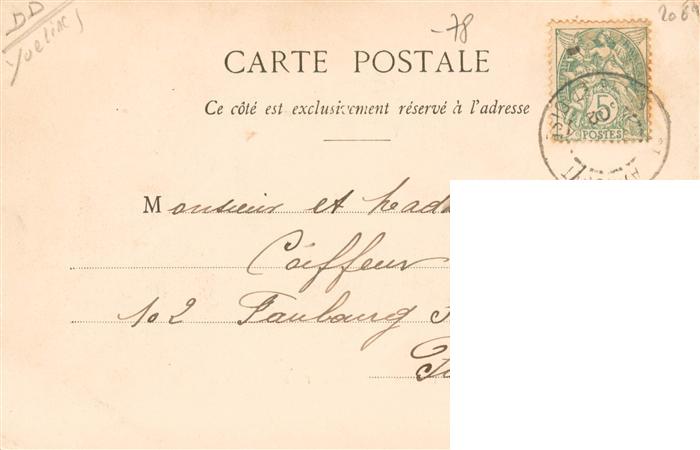 DD
Yvelines
-78
2089
CARTE POSTALE
Ce côté est exclusivement réservé à l'adresse
5c
POSTES
02
Monsieur et Mad
Coiffeur
102 Faubourg